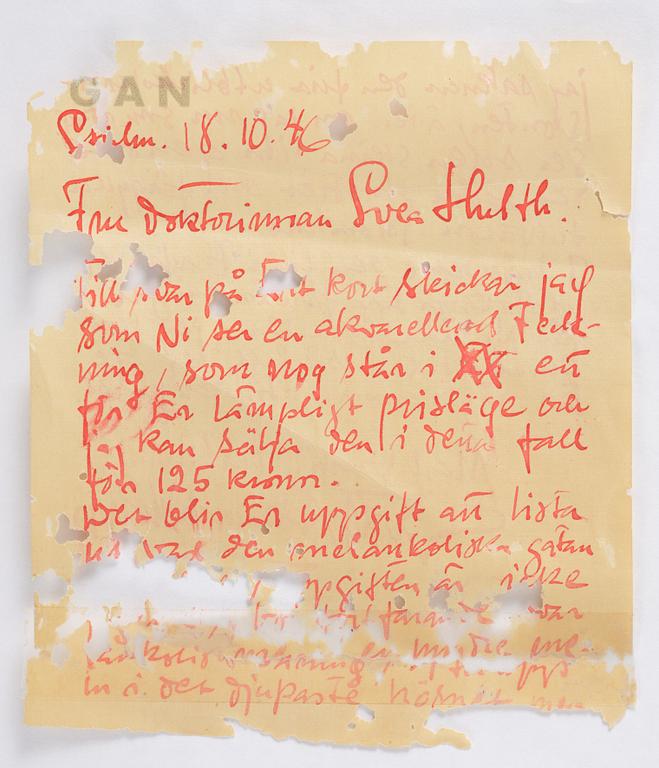 GAN
18.10.46
Fru doktorinnan Svea Hulth.
Till svar på Ert kort skickar jag
som Ni ser en akvarellerad Teck-
ning, som nog står i ett
för Er lämpligt prisläge och
jag kan sälja den i detta fall
för 125 kronor.
Det blir Er uppgift att lista
ut var den melankoliska gatan
uppgiften är icke
var
en mindre me-
in i det djupaste hörnet